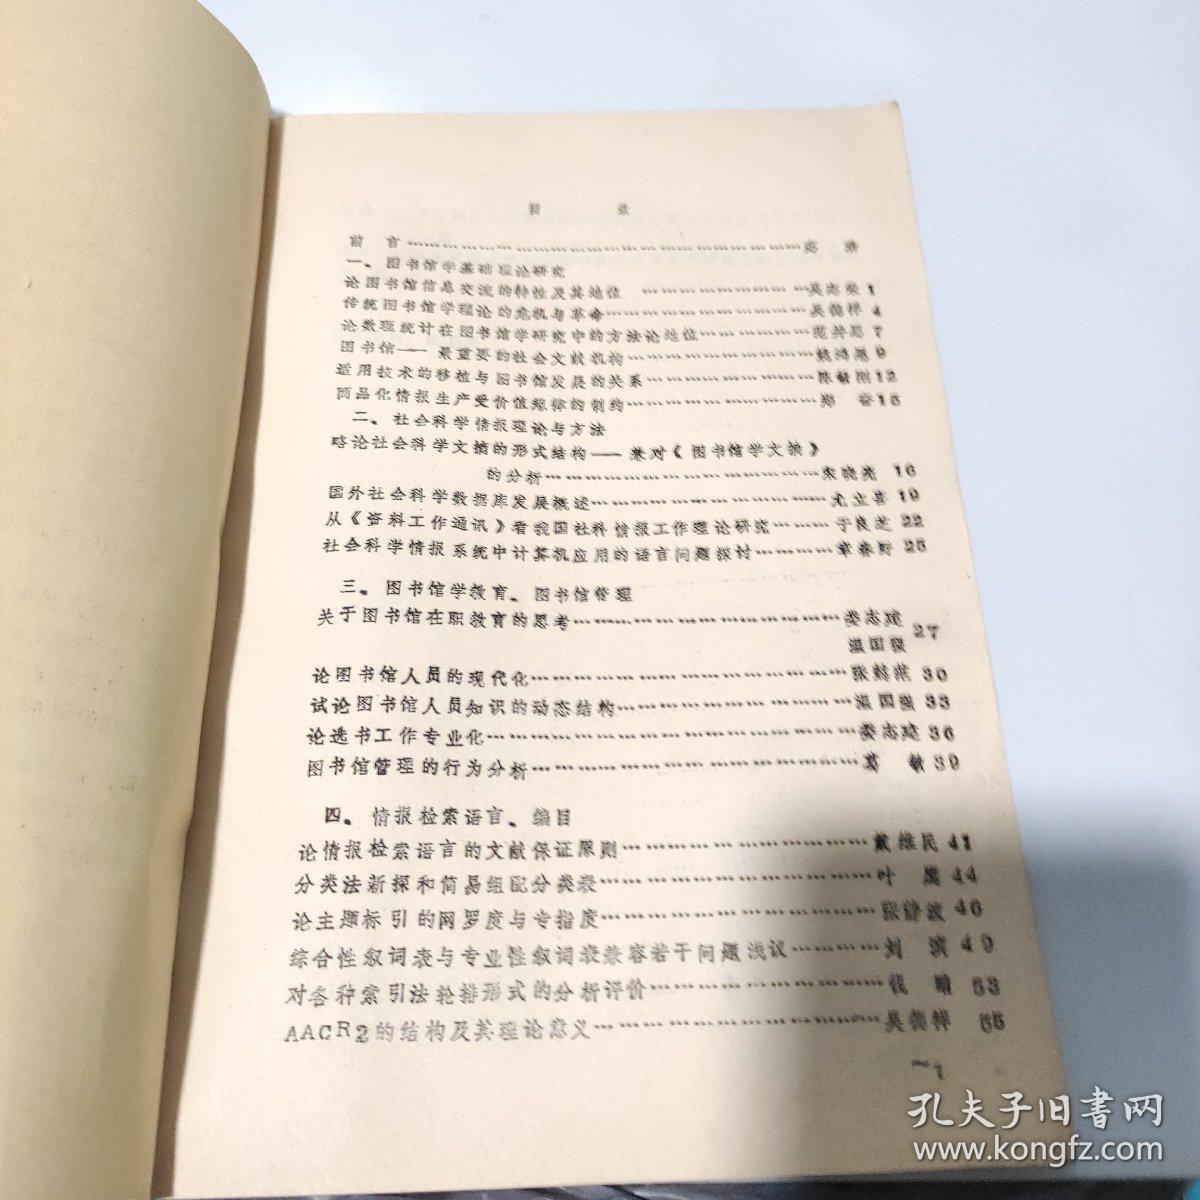 目 录
前 言………………………………………………浩
一、图书馆学基础理论研究
论图书馆信息交流的特性及其地位 …………………吴志荣 1
传统图书馆学理论的危机与革命…………………………吴德祥 4
论数理统计在图书馆学研究中的方法论地位……………范并思 7
图书馆——最重要的社会文献机构………………………9
适用技术的移植与图书馆发展的关系……………………陈敏刚12
商品化情报生产受价值规律的制约………………………郑 15
二、社会科学情报理论与方法
略论社会科学文摘的形式结构——兼对《图书馆学文摘》
的分析………………………………宋晓亮 16
国外社会科学数据库发展概述……………………………尤立喜 19
从《资料工作通讯》看我国社科情报工作理论研究………于良芝 22
社会科学情报系统中计算机应用的语言问题探讨…………章春野 25
三、图书馆学教育、图书馆管理
关于图书馆在职教育的思考………………………………娄志建
温国强 27
论图书馆人员的现代化……………………………………张 30
试论图书馆人员知识的动态结构…………………………温国强 33
论选书工作专业化…………………………………………娄志建 36
图书馆管理的行为分析……………………………………葛 敏 39
四、情报检索语言、编目
论情报检索语言的文献保证原则…………………………戴维民 41
分类法新探和简易组配分类表……………………………叶 鹰 44
论主题标引的网罗度与专指度……………………………张静波 46
综合性叙词表与专业性叙词表兼容若干问题浅议…………刘 滨 49
对各种索引法轮排形式的分析评价………………………钱 晴 53
AACR2的结构及其理论意义………………………………吴德祥 55
—1
孔夫子旧书网
www.kongfz.com